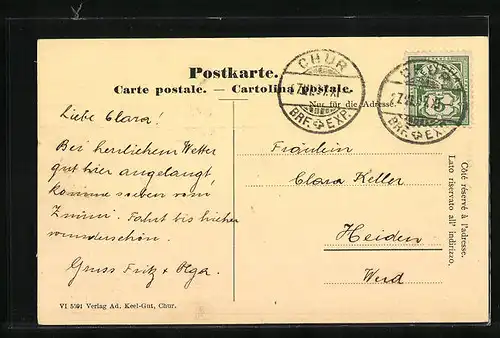 Postkarte.
Carte postale. — Cartolina postale.
Nur für die Adresse.
CHUR
BRF. EXP.
CHUR
BRF. EXP.
Liebe Clara!
Bei herrlichem Wetter
gut hier angelangt,
komme soeben vom
Fahrt bis hieher
wunderschön.
Gruss Fritz & Olga.
Fräulein
Clara Keller
Heiden
Werd
Côté réservé à l'adresse.
Lato riservato all' indirizzo.
VI 5391 Verlag Ad. Keel-Gut, Chur.